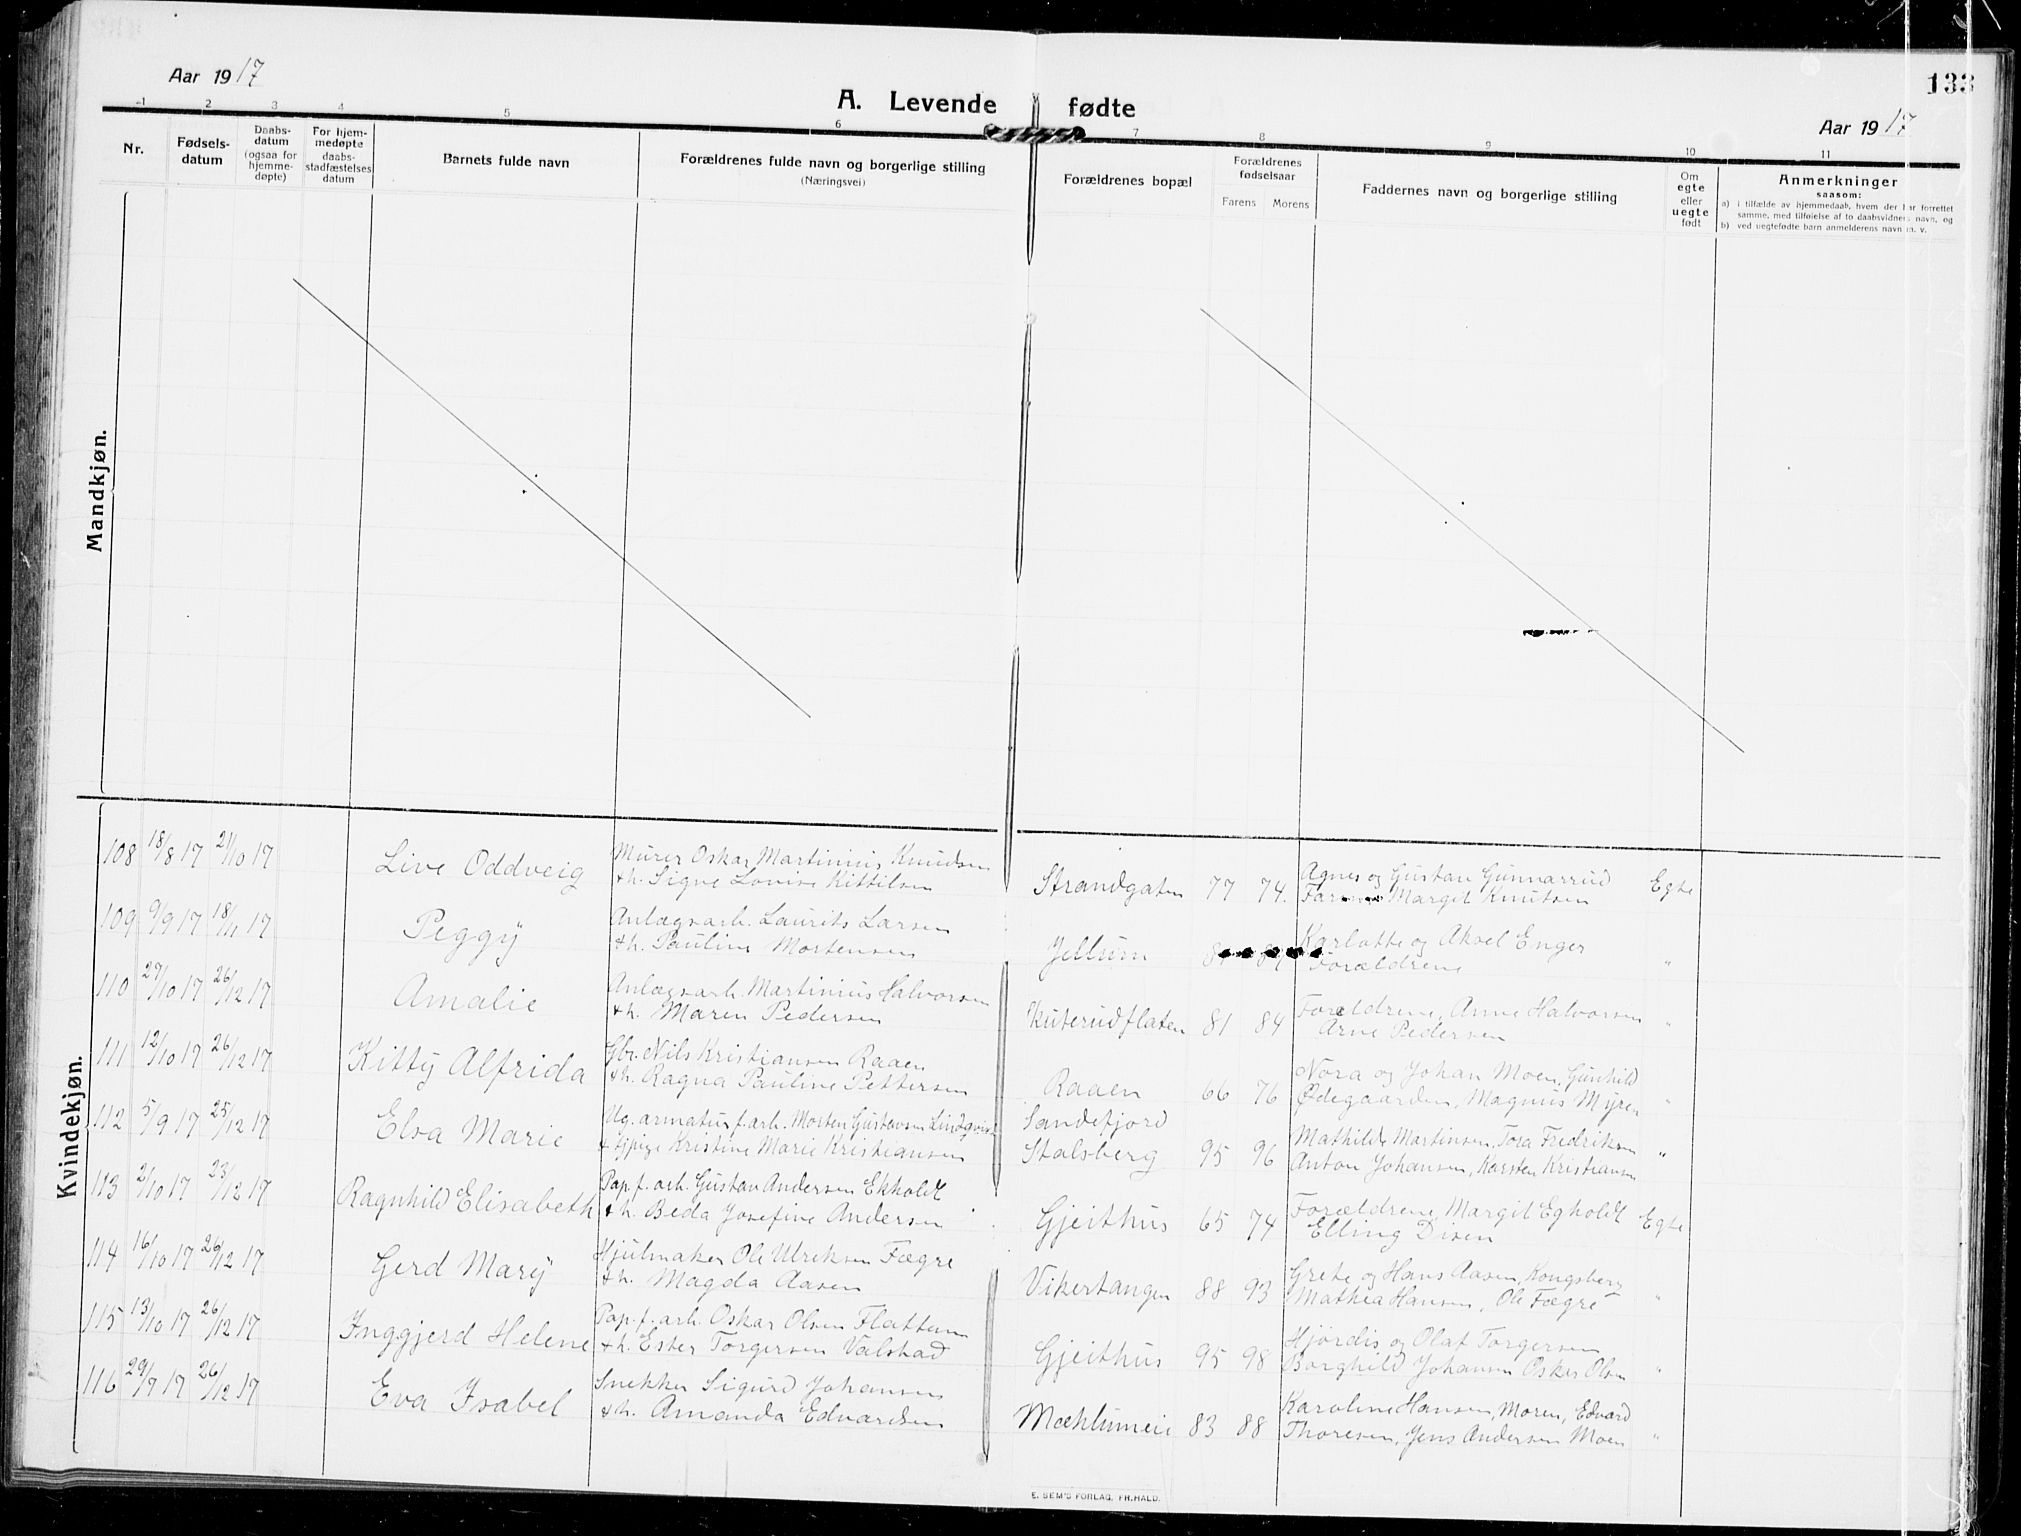 Aar 1917
A. Levende fødte
133
Aar 1917
1 2 3 4 5 6 7 8 9 10 11
Nr.
Fødsels-
datum
Daabs-
datum
(ogsaa for
hjemme-
døpte)
For hjem-
medøpte
daabs-
stadfæstelses
datum
Barnets fulde navn
Forældrenes fulde navn og borgerlige stilling
(Næringsvei)
Forældrenes bopæl
Forældrenes
fødselsaar
Farens Morens
Faddernes navn og borgerlige stilling
Om
egte
eller
uegte
født
Anmerkninger
saasom:
a) i tilfælde av hjemmedaab, hvem der har forrettet
samme, med tilføielse af to daabsvidners navn, og
b) ved uegtefødte barn anmelderens navn m. v.
Mandkjøn.
Kvindekjøn.
108 18/8 17 21/10 17 Live Oddveig
Murer Oskar Martinius Knudsen
+ h. Signe Lovise Kittilsen
Strandgaten 77 74.
Agnes og Gustav Gunnarrud
Faren Margit Knutsen
Egte
109 9/9 17 18/11 17 Peggy
Anlægsarb. Laurits Larsen
+ h. Pauline Mortensen
Jellum
Karlotte og Aksel Enger
Forældrene "
110 27/10 17 26/12 17 Amalie
Anlægsarb. Martinius Halvorsen
+ h. Maren Pedersen
Kuterudflaten 81 84
Forældrene, Anne Halvorsen
Arne Pedersen "
111 12/10 17 26/12 17 Kitty Alfrida
Gbr. Nils Kristiansen Raaen
+ h. Ragna Pauline Pettersen
Raaen 66 76
Nora og Johan Moen, Gunhild
Ødegaarden, Magnus Myren "
112 5/9 17 25/12 17 Elsa Marie
Ug. armatur f. arb. Morten Gustavsen Lindqvist
+ tjpige Kristine Marie Kristiansen
Sandefjord
Stalsberg 95 96
Mathilde Martinsen, Tora Fredriksen
Anton Johansen, Karsten Kristiansen "
113 2/10 17 23/12 17 Ragnhild Elisabeth
Pap. f. arb. Gustav Andersen Ekholdt
+ h. Beda Josefine Andersen
Gjeithus 65 74
Forældrene, Margit Egholdt
Elling Disen
Egte
114 16/10 17 26/12 17 Gerd Mary
Hjulmaker Ole Ulriksen Fægre
+ h. Magda Aasen
Vikertangen 88 93
Grete og Hans Aasen, Kongsberg
Mathea Hansen, Ole Fægre "
115 13/10 17 26/12 17 Inggjerd Helene
Pap. f. arb. Oskar Olsen Flattum
+ h. Ester Torgersen Valstad
Gjeithus 95 98
Hjördis og Olaf Torgersen
Borghild Johansen Oskar Olsen "
116 29/7 17 26/12 17 Eva Isabel
Snekker Sigurd Johansen
+ h. Amanda Edvardsen
Mæhlumeie 83 88
Karoline Hansen, Moren, Edvard
Thoresen, Jens Andersen Moen "
E. SEM'S FORLAG, FR.HALD.